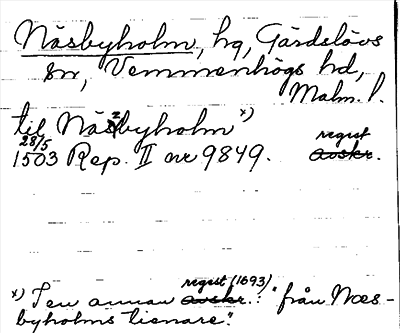 Näsbyholm, hg, Gärdslövs
sn, Vemmenhögs hd,
Malm. l.
til Näszbyholm x)
28/5
1503 Rep. II nr 9849. regest
avskr.
x) I en annan avskr. regest (1693): "från Næs-
byholms tienare".